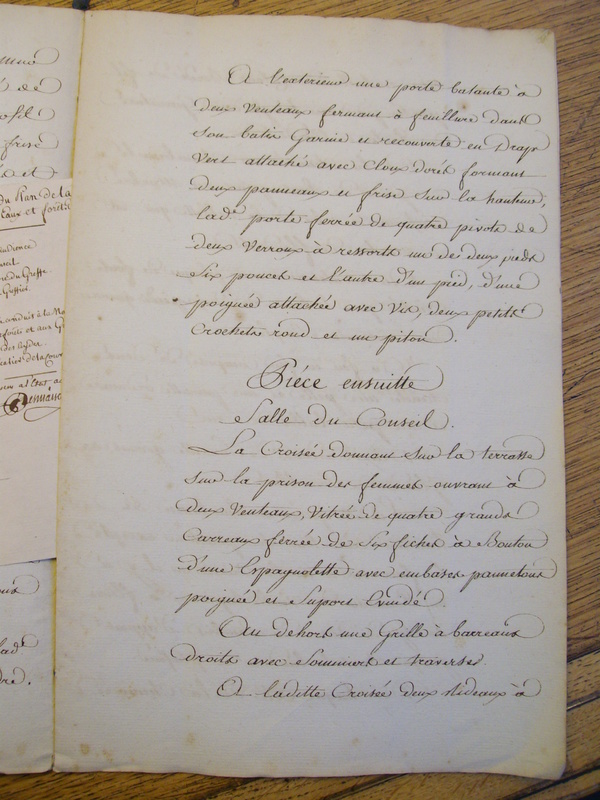 du Plan de la
Eaux et forêts
A l'exterieur une porte batante à
deux Venteaux fermant à feuillure dans
son batis Garnie et recouverte en Drap
Vert attaché avec Cloux dorés formant
deux panneaux et frise sur la hauteur,
lad.e porte ferrée de quatre pivots de
deux Verroux à ressorts un des deux pieds
Six pouces et l'autre d'un pied, d'une
poignée attachée avec Vis, deux petits
Crochets rond et un piton.
Piéce ensuitte
Salle du Conseil.
La Croisée donnant sur la terrasse
sur la prison des femmes ouvrant à
deux Venteaux, Vitrée de quatre grands
Carreaux ferrée de Six fiches à Bouton
d'une Espagnolette avec embases pannetons
poignée et Suport Evuidé.
Au dehors une Grille à barreaux
droits avec Sommiers et traverses.
A laditte Croisée deux Rideaux à